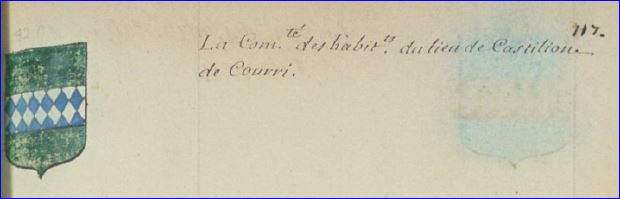 117.
La Com.té des habit.ts du lieu de Castilion
de Courri.